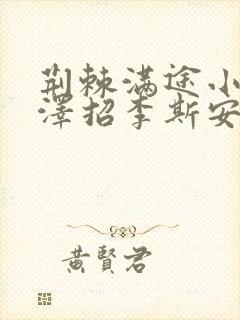 荆棘满途小
澤招李斯安
黄賢君